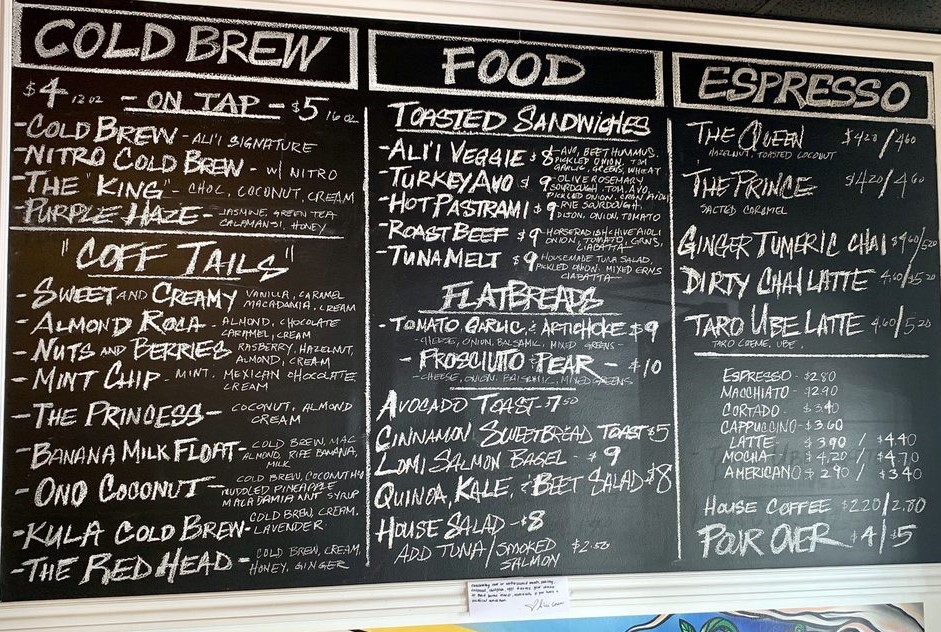 COLD BREW
$4 12 OZ - ON TAP - $5 16 OZ
- COLD BREW - ALI'I SIGNATURE
- NITRO COLD BREW - W/ NITRO
- THE "KING" - CHOC, COCONUT, CREAM
- PURPLE HAZE - JASMINE, GREEN TEA
CALAMANSI, HONEY
"COFF TAILS"
- SWEET AND CREAMY VANILLA, CARAMEL
MACADAMIA, CREAM
- ALMOND ROCA - ALMOND, CHOCOLATE
CARAMEL, CREAM
- NUTS AND BERRIES RASBERRY, HAZELNUT,
ALMOND, CREAM
- MINT CHIP - MINT, MEXICAN CHOCOLATTE
CREAM
- THE PRINCESS - COCONUT, ALMOND
CREAM
- BANANA MILK FLOAT - COLD BREW, MAC
ALMOND, RIPE BANANA,
MILK
- ONO COCONUT - COLD BREW, COCONUT
MUDDLED PINEAPPLE
MACADAMIA NUT SYRUP
- KULA COLD BREW - COLD BREW, CREAM,
LAVENDER
- THE RED HEAD - COLD BREW, CREAM,
HONEY, GINGER
FOOD
TOASTED SANDWICHES
- ALI'I VEGGIE $8 - AVO, BEET HUMMUS,
PICKLED ONION, TOM
GARLIC, GREENS, WHEAT
- TURKEY AVO $9 - OLIVE ROSEMARY
SOURDOUGH, TOM, AVO,
PICKLED ONION, AIOLI
- HOT PASTRAMI $9 - RYE SOURDOUGH,
DIJON, ONION, TOMATO
- ROAST BEEF $9 HORSERADISH CHIVE AIOLI
ONION, TOMATO, GRNS,
CIABATTA
- TUNA MELT $9 HOUSEMADE TUNA SALAD,
PICKLED ONION, MIXED GRNS
CIABATTA
FLATBREADS
- TOMATO GARLIC, & ARTICHOKE $9
- CHEESE, ONION, BALSAMIC, MIXED GREENS -
- PROSCIUTO & PEAR - $10
- CHEESE, ONION, BALSAMIC, MIXED GREENS
AVOCADO TOAST - 7 50
CINNAMON SWEETBREAD TOAST $5
LOMI SALMON BAGEL - $9
QUINOA, KALE, & BEET SALAD $8
HOUSE SALAD - $8
ADD TUNA / SMOKED SALMON $2.50
ESPRESSO
THE QUEEN $420/460
HAZELNUT, TOASTED COCONUT
THE PRINCE $420/460
SALTED CARAMEL
GINGER TUMERIC CHAI $460/520
DIRTY CHAI LATTE 4.60/$5 20
TARO UBE LATTE 4.60/5 20
TARO CREME, UBE,
ESPRESSO - $2.80
MACCHIATO - $2.90
CORTADO - $3.40
CAPPUCCINO - $3.60
LATTE - $3.90 / $4.40
MOCHA - $4.20 / $4.70
AMERICANO $2.90 / $3.40
HOUSE COFFEE $2.20/2.80
POUR OVER $4/$5